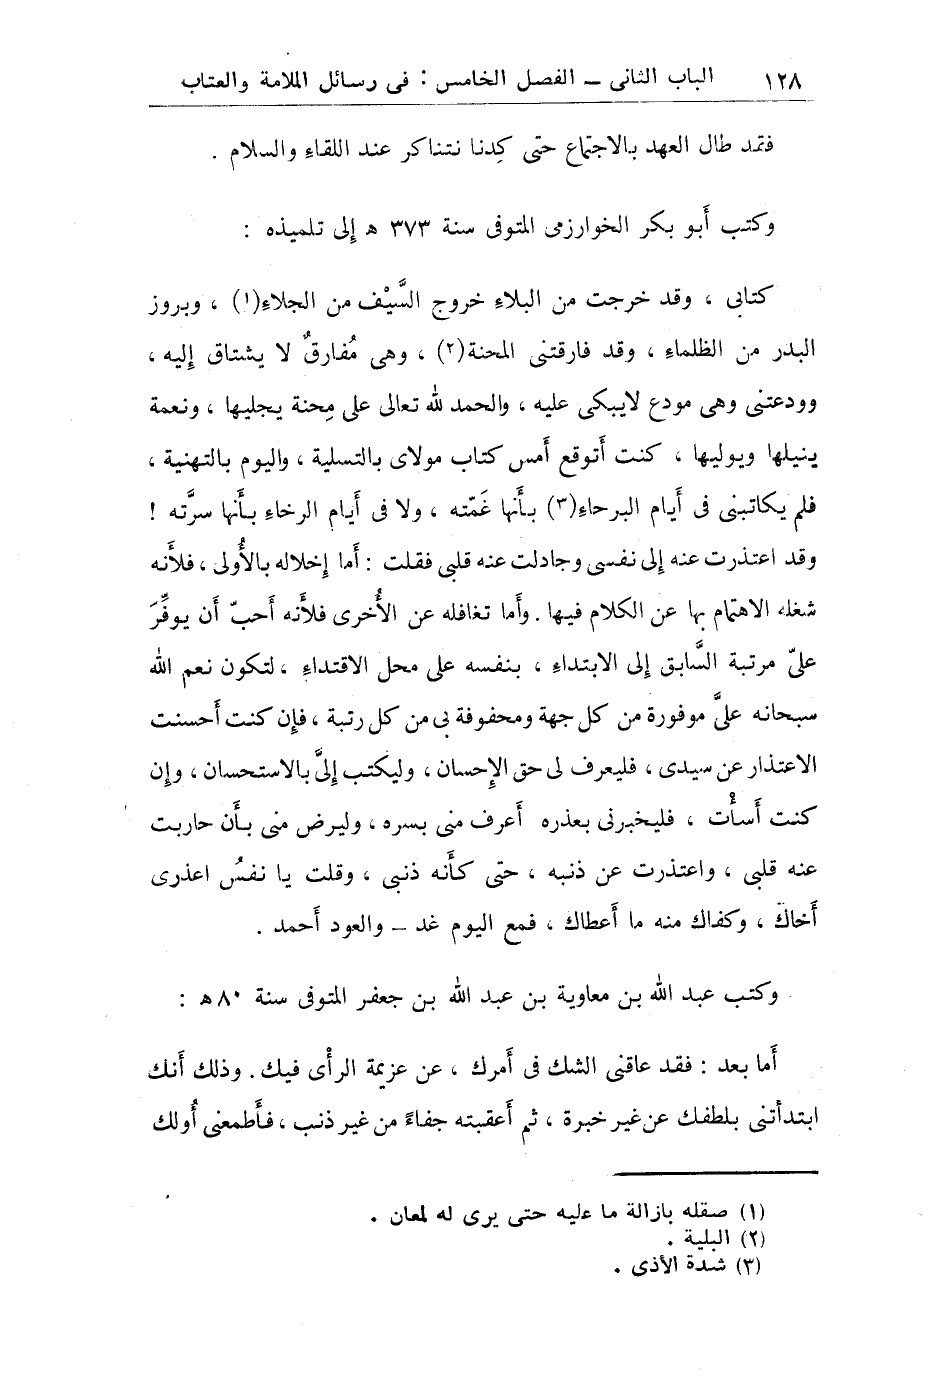 ١٢٨ الباب الثانى – الفصل الخامس : فى رسائل الملامة والعتاب
فقد طال العهد بالاجتماع حتى كِدنا نتناكر عند اللقاء والسلام .
وكتب أَبو بكر الخوارزمى المتوفى سنة ٣٧٣ ه إِلى تلميذه :
كتابى ، وقد خرجت من البلاء خروج السَّيْف من الجلاءِ(١) ، وبروز
البدر من الظلماءِ ، وقد فارقتنى المحنة(٢) ، وهى مُفارقٌ لا يشتاق إِليه ،
وودعتنى وهى مودع لايبكى عليه ، والحمد لله تعالى على مِحنة يجليها ، ونعمة
ينيلها ويوليها ، كنت أَتوقع أَمس كتاب مولاى بالتسلية ، واليوم بالتهنية ،
فلم يكاتبنى فى أَيام البرحاءِ(٣) بأَنها غَمّته ، ولا فى أَيام الرخاءِ بأَنها سرَّته !
وقد اعتذرت عنه إِلى نفسى وجادلت عنه قلبى فقلت : أَما إِخلاله بالأُولى ، فلأَنه
شغله الاهتمام بها عن الكلام فيها . وأَما تغافله عن الأُخرى فلأَنه أَحبّ أَن يوفِّرَ
علىّ مرتبة السَّابق إِلى الابتداءِ ، بنفسه على محل الاقتداءِ ، لتكون نعم الله
سبحانه علىَّ موفورة من كل جهة ومحفوفة بى من كل رتبة ، فإِن كنت أَحسنت
الاعتذار عن سيدى ، فليعرف لى حق الإِحسان ، وليكتب إِلىَّ بالاستحسان ، وإِن
كنت أَسأْت ، فليخبرنى بعذره أَعرف منى بسره ، وليرض منى بأَن حاربت
عنه قلبى ، واعتذرت عن ذنبه ، حتى كأَنه ذنبى ، وقلت يا نفسُ اعذرى
أَخاك ، وكفاك منه ما أَعطاك ، فمع اليوم غد – والعود أَحمد .
وكتب عبد الله بن معاوية بن عبد الله بن جعفر المتوفى سنة ٨٠ ه :
أَما بعد : فقد عاقنى الشك فى أَمرك ، عن عزيمة الرأْى فيك . وذلك أَنك
ابتدأتنى بلطفك عن غير خبرة ، ثم أَعقبته جفاءً من غير ذنب ، فأَطمعنى أُولك
(١) صقله بازالة ما عليه حتى يرى له لمعان .
(٢) البلية .
(٣) شدة الأذى .